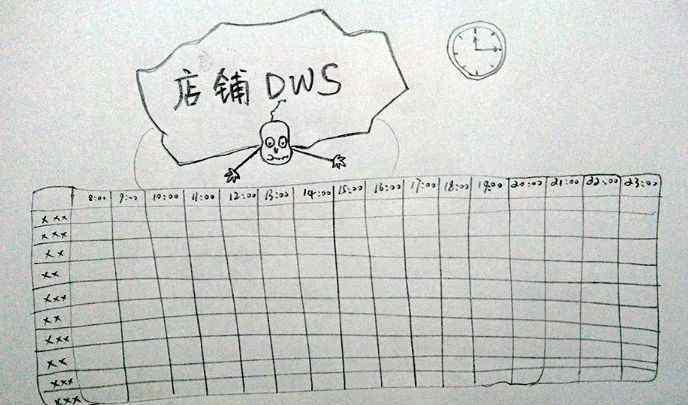 店铺DWS
8:00 9:00 10:00 11:00 12:00 13:00 14:00 15:00 16:00 17:00 18:00 19:00 20:00 21:00 22:00 23:00
xxx
xxx
xx
xx
xxx
xx
xxx
xx
xxx
xxx